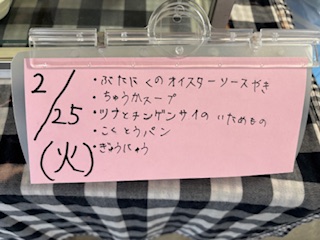 2/25
(火)
・ぶたにくのオイスターソースやき
・ちゅうかスープ
・ツナとチンゲンサイのいためもの
・こくとうパン
・ぎゅうにゅう